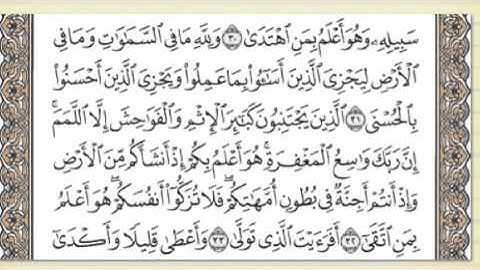 سَبِيلِهِۦ وَهُوَ أَعْلَمُ بِمَنِ ٱهْتَدَىٰ ٣٠ وَلِلَّهِ مَا فِى ٱلسَّمَٰوَٰتِ وَمَا فِى
ٱلْأَرْضِ لِيَجْزِىَ ٱلَّذِينَ أَسَٰٓـُٔوا۟ بِمَا عَمِلُوا۟ وَيَجْزِىَ ٱلَّذِينَ أَحْسَنُوا۟
بِٱلْحُسْنَى ٣١ ٱلَّذِينَ يَجْتَنِبُونَ كَبَٰٓئِرَ ٱلْإِثْمِ وَٱلْفَوَٰحِشَ إِلَّا ٱللَّمَمَ ۚ
إِنَّ رَبَّكَ وَٰسِعُ ٱلْمَغْفِرَةِ ۚ هُوَ أَعْلَمُ بِكُمْ إِذْ أَنشَأَكُم مِّنَ ٱلْأَرْضِ
وَإِذْ أَنتُمْ أَجِنَّةٌ فِى بُطُونِ أُمَّهَٰتِكُمْ ۖ فَلَا تُزَكُّوٓا۟ أَنفُسَكُمْ ۖ هُوَ أَعْلَمُ
بِمَنِ ٱتَّقَىٰٓ ٣٢ أَفَرَءَيْتَ ٱلَّذِى تَوَلَّىٰ ٣٣ وَأَعْطَىٰ قَلِيلًا وَأَكْدَىٰٓ